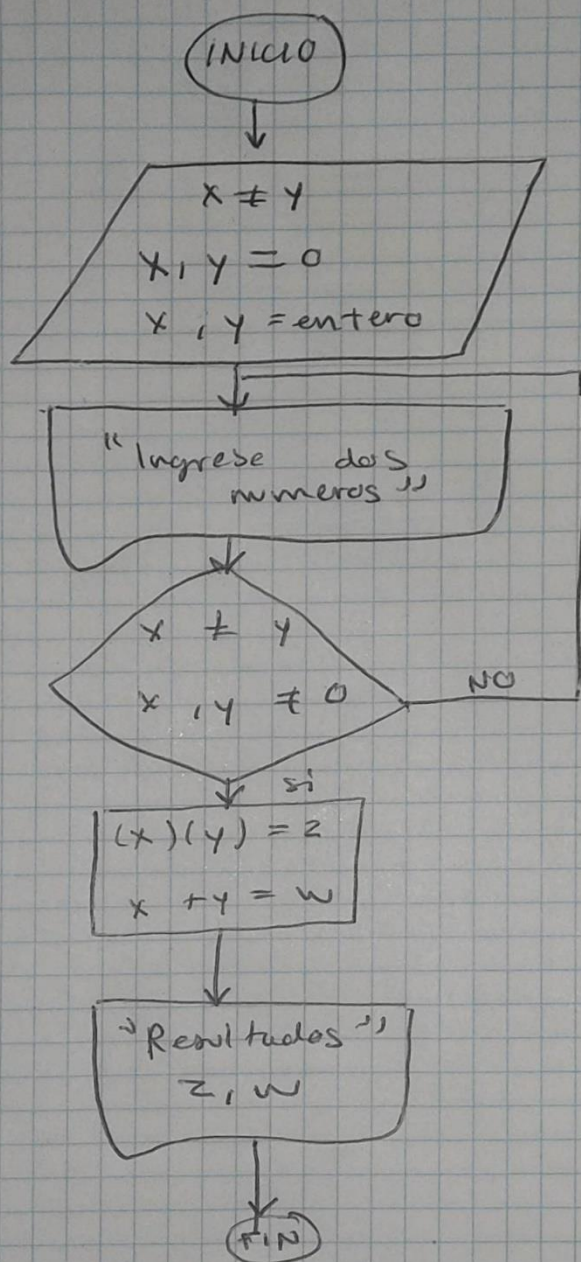 INICIO
x ≠ y
x, y = 0
x, y = entero
"Ingrese dos
numeros"
x ≠ y
x, y ≠ 0
NO
si
(x)(y) = z
x + y = w
"Resultados"
z, w
FIN